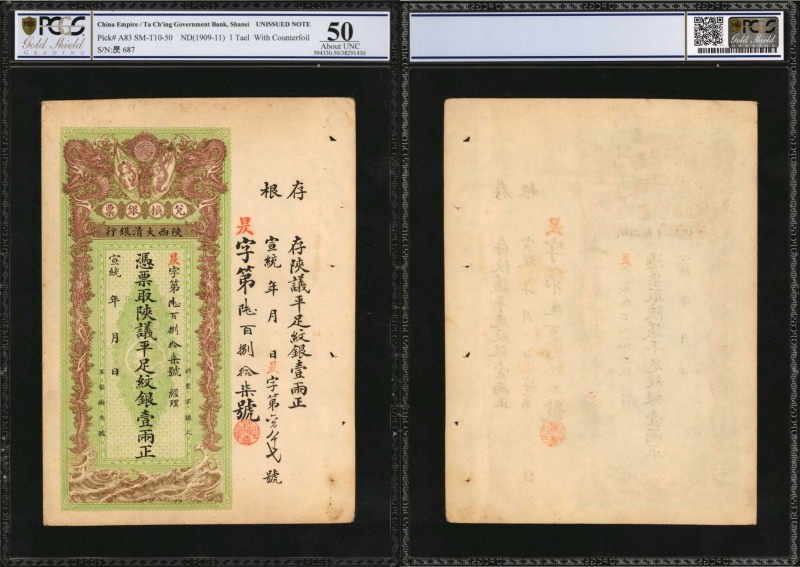 PCGS
Gold Shield
GRADING
China Empire / Ta Ch'ing Government Bank, Shansi UNISSUED NOTE
Pick# A83 SM-T10-50 ND(1909-11) 1 Tael With Counterfoil
S/N:昃 687
50
About UNC
594330.50/38291430
PCGS
Gold Shield
票銀換兌
行銀清大西陝
昃字第陸百捌拾柒號 經理
憑票取陝議平足紋銀壹兩正
宣統 年 月 日
存
根
存陝議平足紋銀壹兩正
宣統 年 月 日 昃字第 號
昃字第陸百捌拾柒號